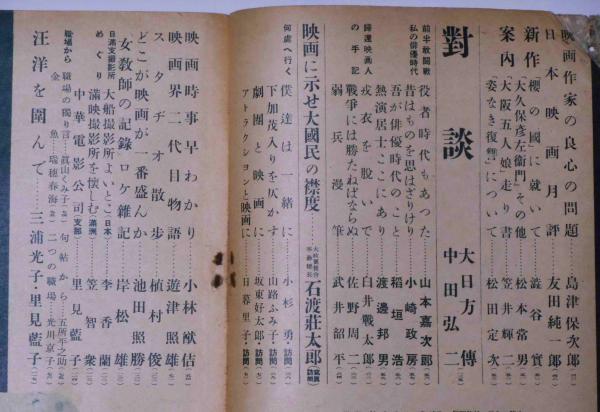 映画作家の良心の問題 島津保次郎
日本映画月評 友田純一郎
新作 櫻の國に就いて 澁谷實
「大久保彦左衛門」その他 松本常男
案内 「大阪五人娘」走り書 笠井輝二
「姿なき復讐」について 松田定次
對談 大日方傳 中田弘二
前半敢闘戰
私の俳優時代
役者時代もあつた 山本嘉次郎
昔はものを思はざりけり 小崎政房
吾が俳優時代のこと 稻垣浩
熱演居士こゝにあり 渡邊邦男
歸還映画人の手記
戎衣を脱いで 白井戰太郎
戰爭には勝たねばならぬ 佐野周二
弱兵漫筆 武井韶平
映画に示せ大國民の襟度 大政翼賛会 石渡莊太郎
何處へ行く
僕達は一緒に 小杉勇・訪問
下加茂入りを仄かす 山路ふみ子・訪問
劇團と映画に 坂東好太郎・訪問
アトラクションと映画に 日暮里子・訪問
映画時事早わかり 小林猷佶
映画界二代目物語 遊津照雄
スタヂオ散歩 植村俊
どこが映画が一番盛んか 池田照勝
「女教師の記錄」ロケ雜記 岸松雄
日満支撮影所めぐり
大船撮影所よいとこ(日本) 李香蘭
満映撮影所を懐しむ(満洲) 笠智衆
中華電影公司(支那) 里見藍子
職場から
職場の獨り言 眞山くみ子
句帖から 五所平之助
金魚 瑞穂春海
二つの職場 光川京子
汪洋を圍んで 三浦光子・里見藍子